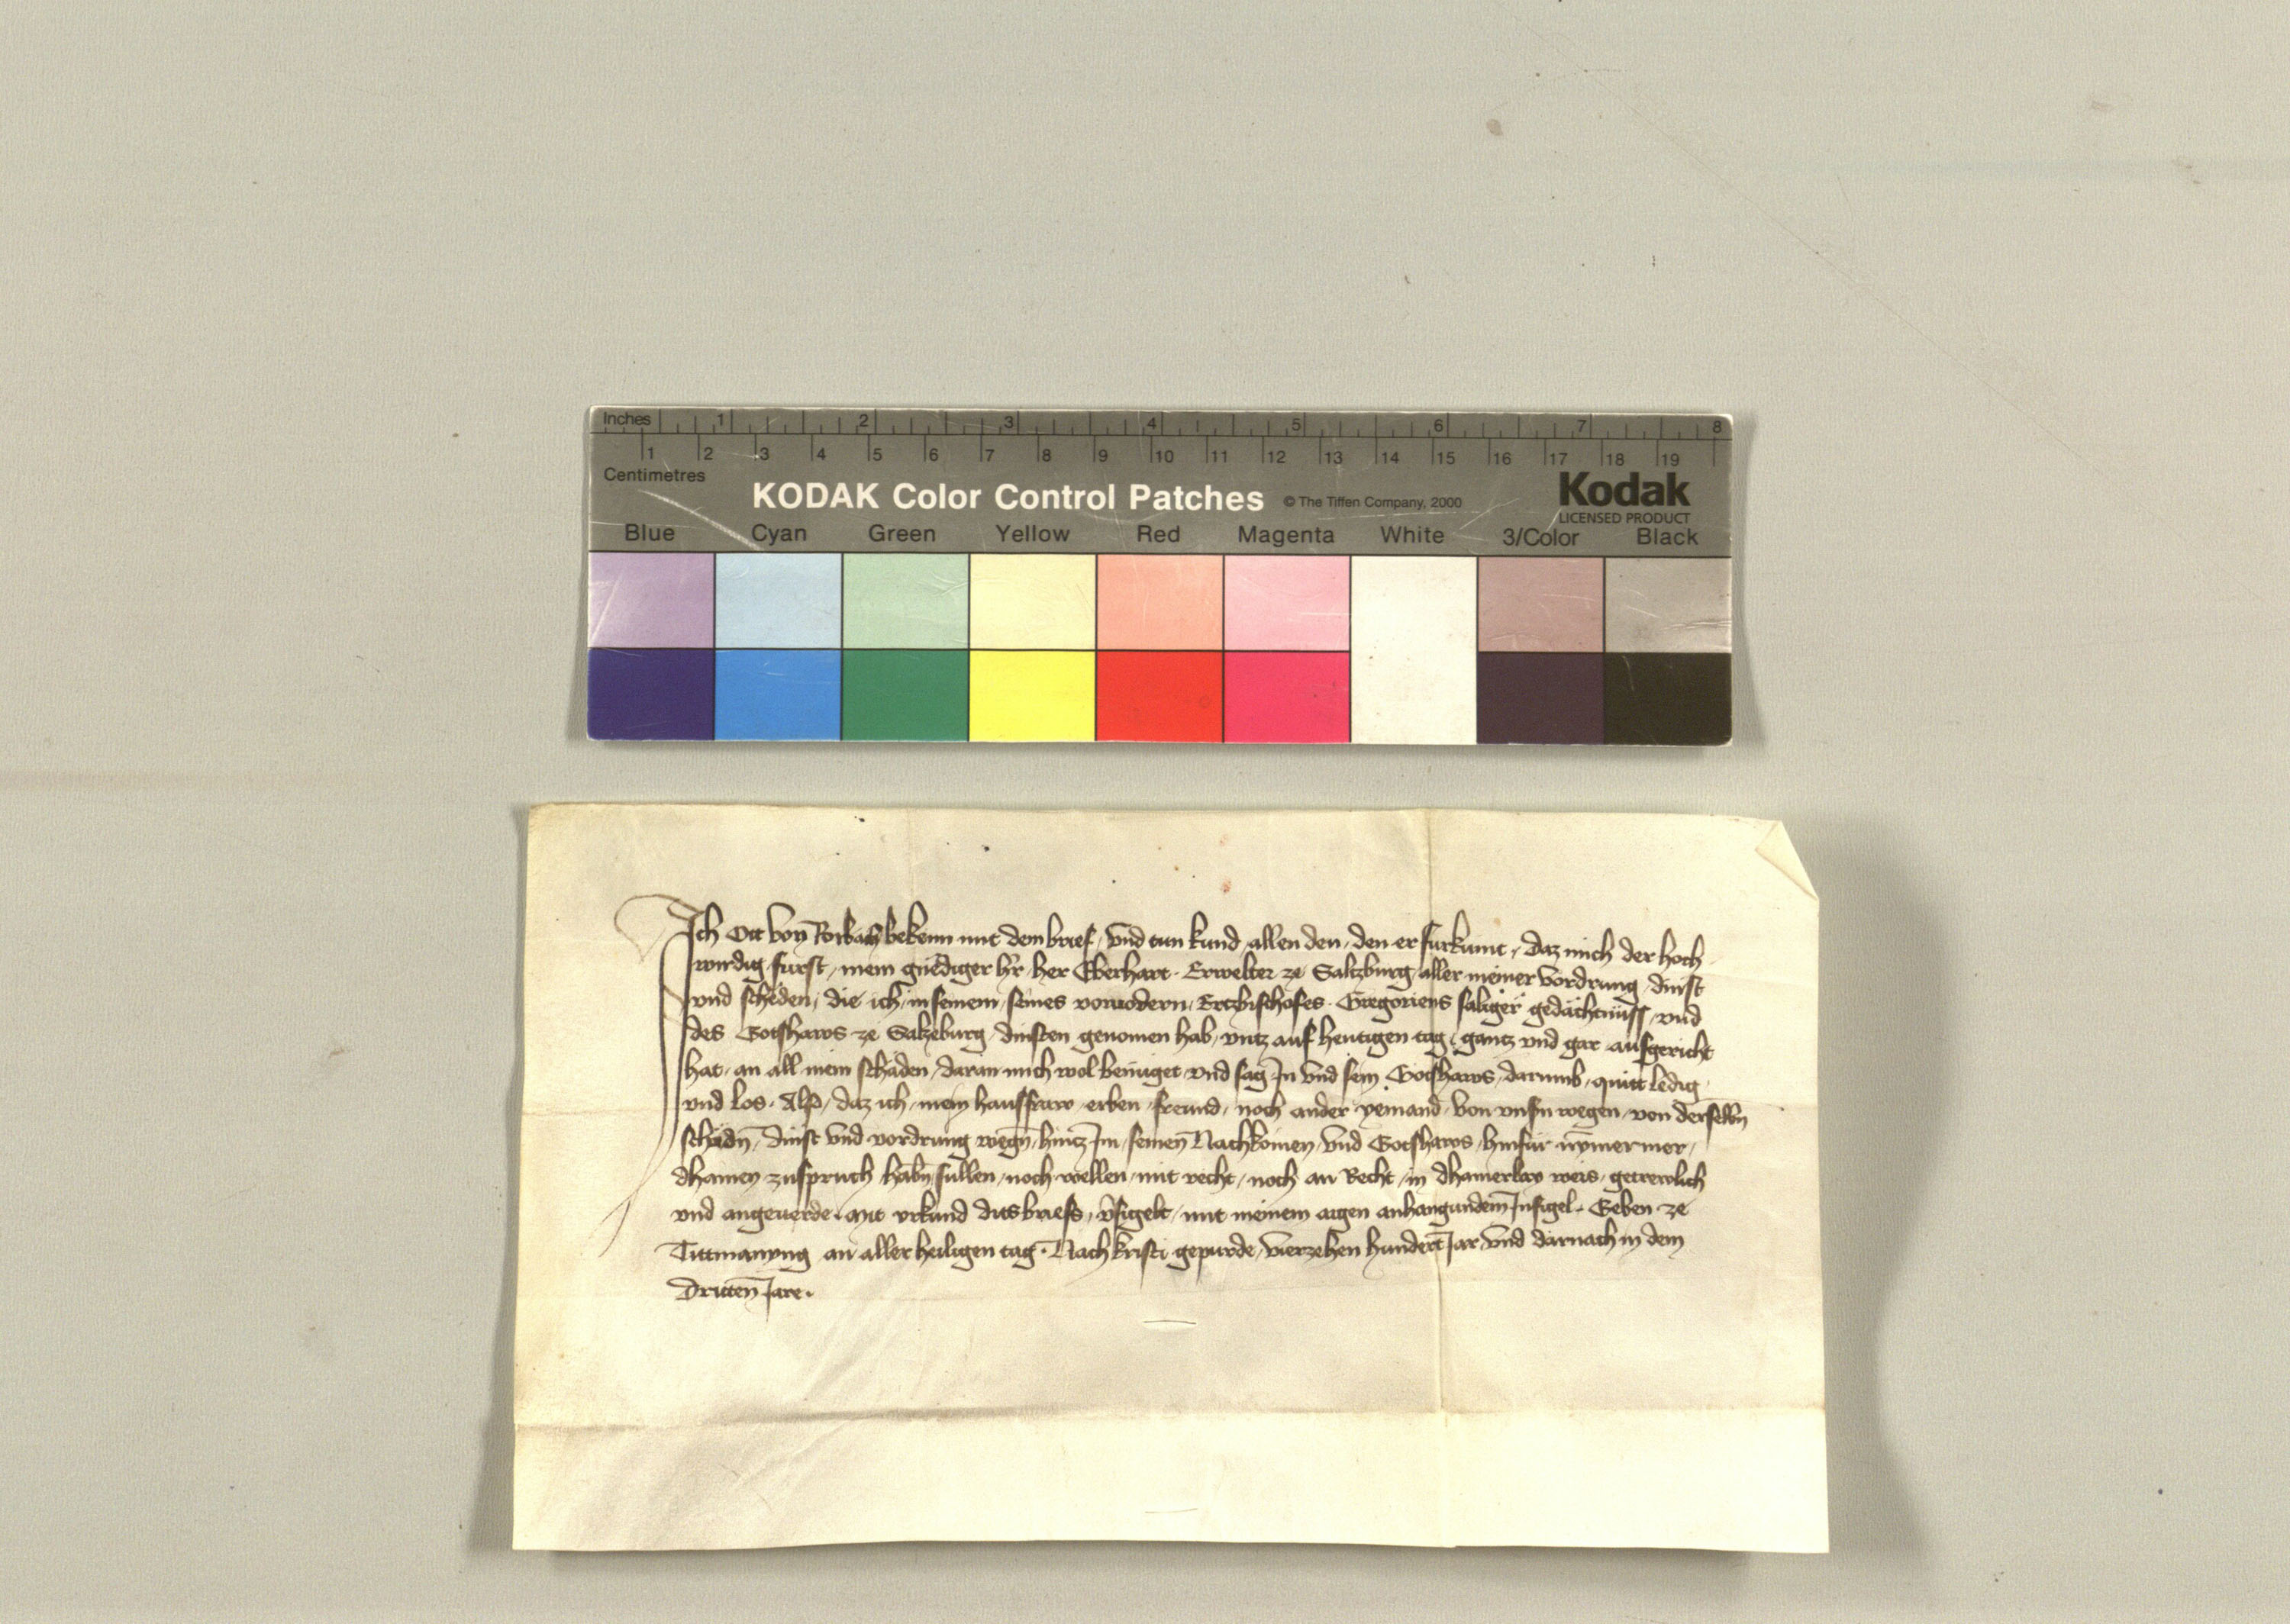 Inches 1 2 3 4 5 6 7 8
1 2 3 4 5 6 7 8 9 10 11 12 13 14 15 16 17 18 19
Centimetres
KODAK Color Control Patches © The Tiffen Company, 2000 Kodak
LICENSED PRODUCT
Blue Cyan Green Yellow Red Magenta White 3/Color Black
Ich Ott von Rorbach bekenn mit dem brief, vnd tun kund allen den, den er furkumt, daz mich der hoch
wirdig furst, mein gnediger h'r, her Eberhart, Erwelter ze Saltzburg aller meiner vordrung, dinst
vnd scheden, die ich, in seinem, seines vorvodern, Ertzbischofes Gregoriens saliger gedächtnüss, vnd
des Gotshaws ze Salzeburg, dinsten genomen hab, vntz auf heutigen tag, gantz vnd gar ausgericht
hat, an all mein schäden, daran mich wol benüget vnd sag In vnd sein Gotshaws, darumb, quitt ledig,
vnd los. Also, daz ich, mein hausfraw, erben, freund, noch ander yemand, von vnsn wegen, von derselbn
schädn, dinst vnd vordrung wegn, hintz Im, seinen Nachkomen, vnd Gotshaws, hinfür nymermer,
dhainen zuspruch habn sullen, noch wellen, mit recht, noch an Recht, in dhainerlay weis, getrewlich
vnd angeuerde. Mit vrkund ditsbriefs, v'sigelt, mit meinem aigen anhangundem Insigel. Geben ze
Tittmanyng an aller heiligen tag. Nach kristi gepurde, vierzehen hundert Jar vnd darnach in dem
Dritten Jare.